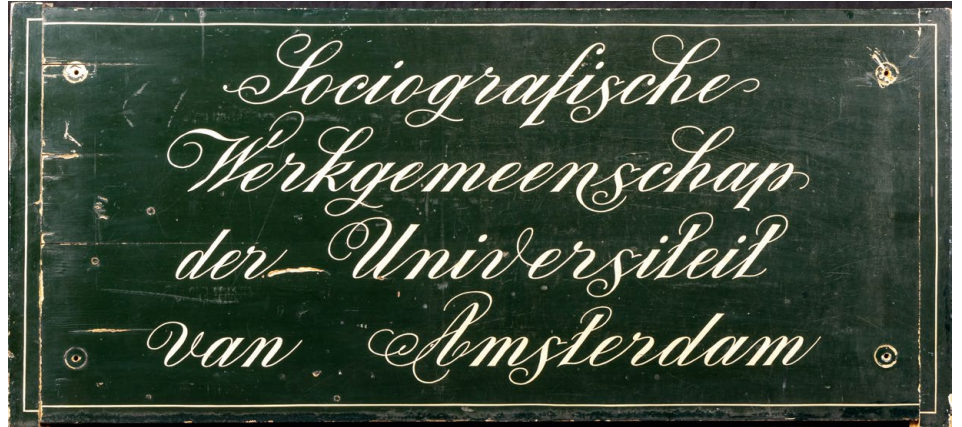 Sociografische
Werkgemeenschap
der Universiteit
van Amsterdam